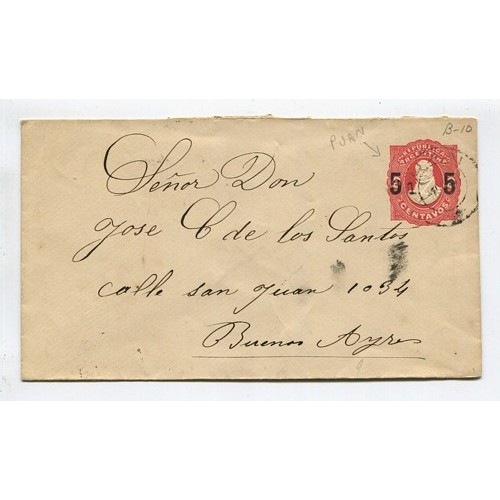 B-10
PJAN
REPUBLICA
ARGENTINA
5 5
CENTAVOS
Señor Don
Jose C de los Santos
calle san Juan 1034
Buenos Ayres